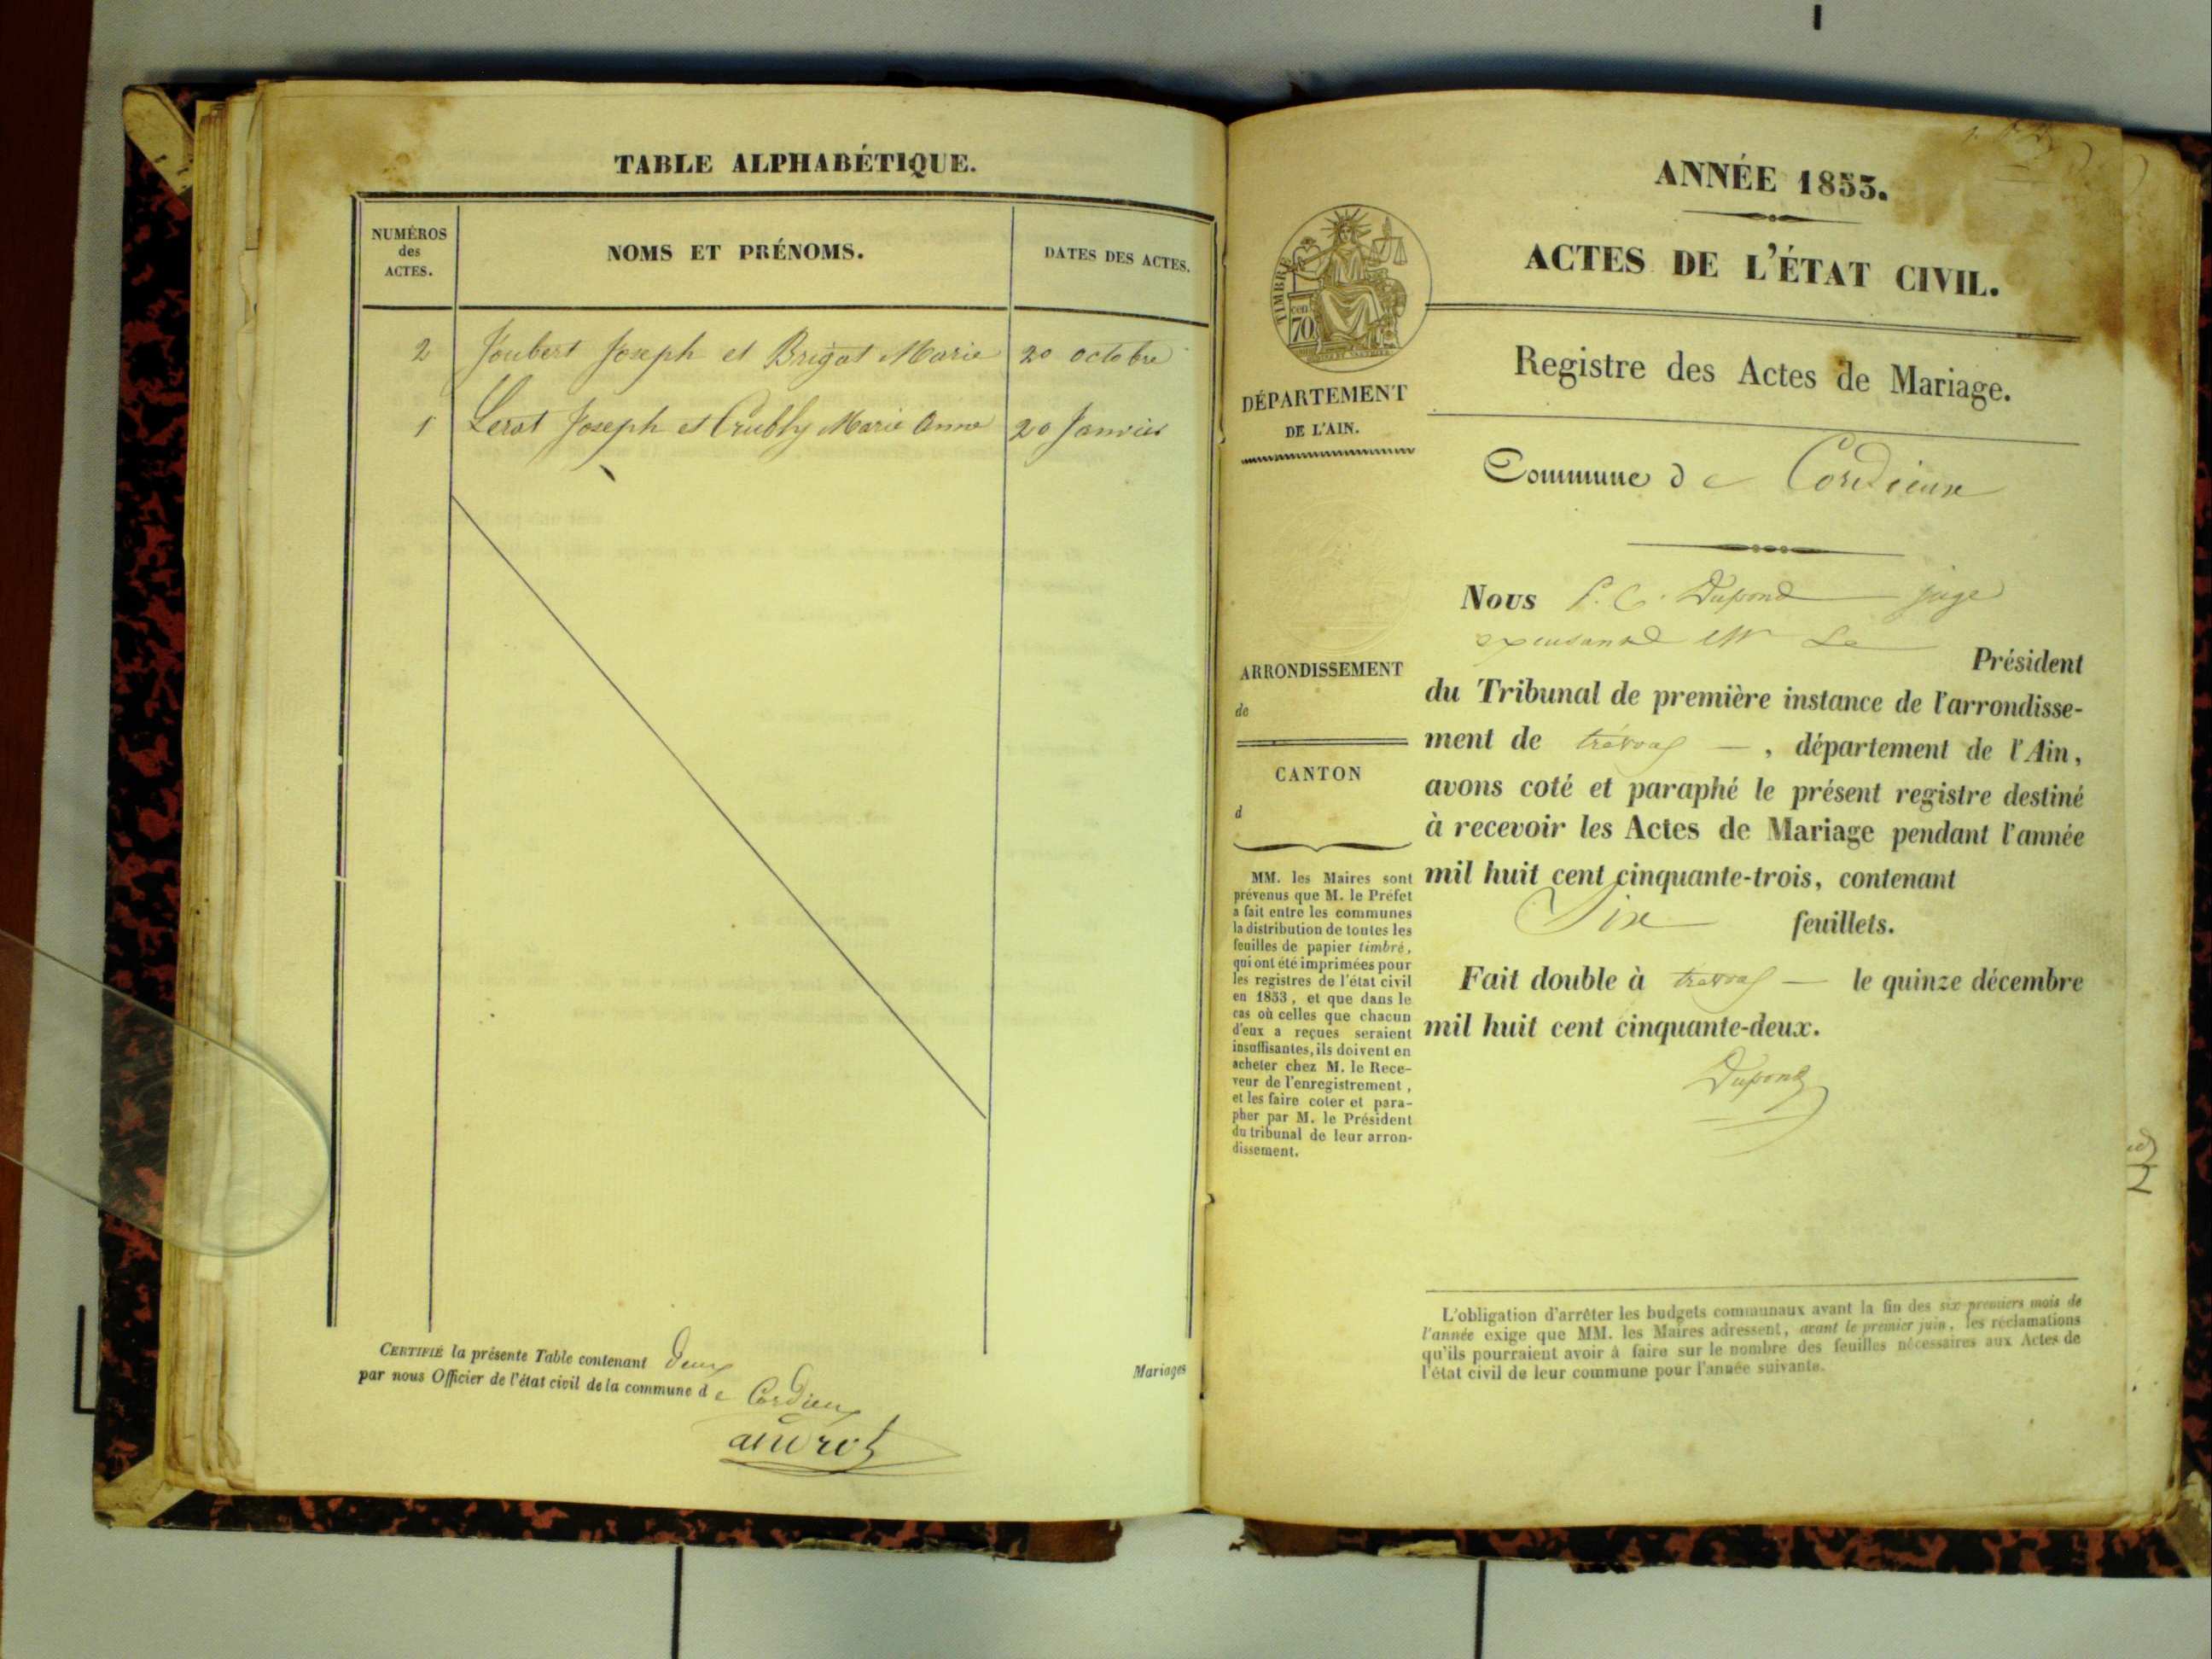 TABLE ALPHABÉTIQUE.
NUMÉROS
des
ACTES.
NOMS ET PRÉNOMS.
DATES DES ACTES.
2 Joubert Joseph et Brigat Marie 20 octobre
1 Lerat Joseph et Marie Anne 20 Janvier
CERTIFIÉ la présente Table contenant deux Mariages
par nous Officier de l'état civil de la commune de Cordieux
ANNÉE 1853.
ACTES DE L'ÉTAT CIVIL.
Registre des Actes de Mariage.
TIMBRE
cen
70
DÉPARTEMENT
DE L'AIN.
Commune de Cordieux
Nous P. C. Dupond juge
Mr Le
Président
du Tribunal de première instance de l'arrondisse-
ment de trévoux — , département de l'Ain,
avons coté et paraphé le présent registre destiné
à recevoir les Actes de Mariage pendant l'année
mil huit cent cinquante-trois, contenant
Six feuillets.
Fait double à trévoux — le quinze décembre
mil huit cent cinquante-deux.
Dupond
ARRONDISSEMENT
de
CANTON
d
MM. les Maires sont
prévenus que M. le Préfet
a fait entre les communes
la distribution de toutes les
feuilles de papier timbré,
qui ont été imprimées pour
les registres de l'état civil
en 1853, et que dans le
cas où celles que chacun
d'eux a reçues seraient
insuffisantes, ils doivent en
acheter chez M. le Rece-
veur de l'enregistrement,
et les faire coter et para-
pher par M. le Président
du tribunal de leur arron-
dissement.
L'obligation d'arrêter les budgets communaux avant la fin des six premiers mois de
l'année exige que MM. les Maires adressent, avant le premier juin, les réclamations
qu'ils pourraient avoir à faire sur le nombre des feuilles nécessaires aux Actes de
l'état civil de leur commune pour l'année suivante.